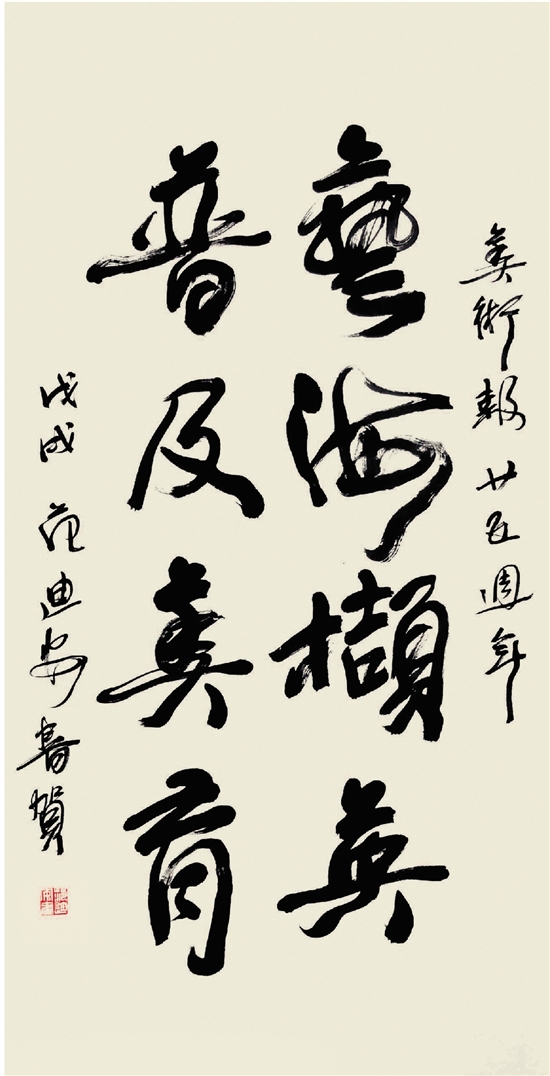 美術報廿五週年
藝海擷英
普及美育
戊戌 范迪安書賀